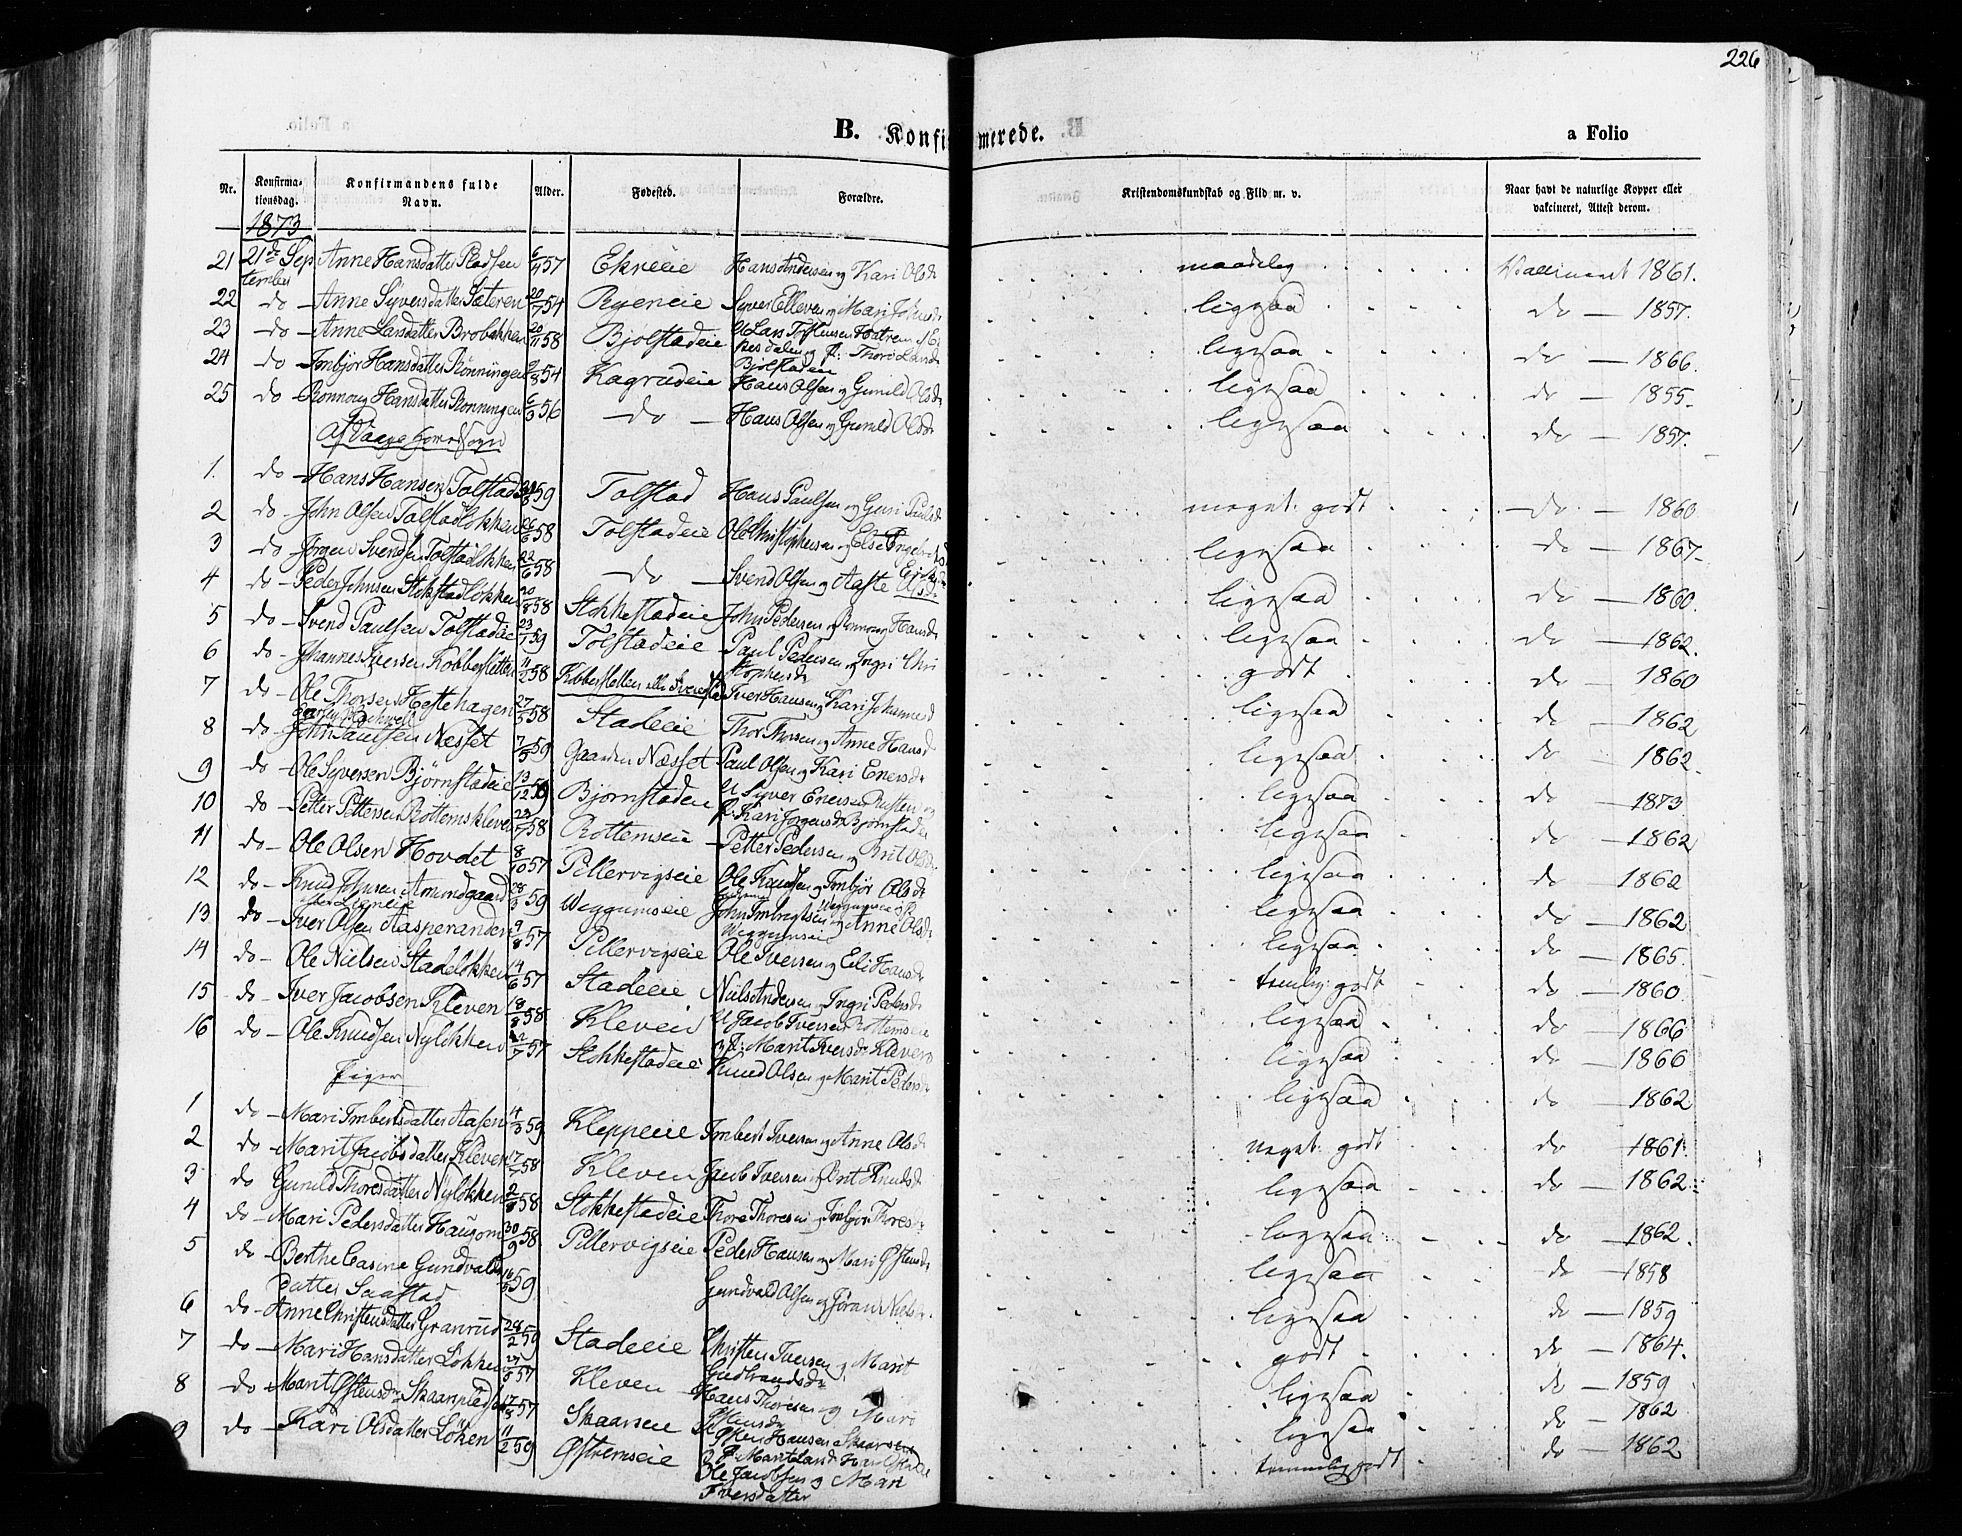 226
B. Konfirmerede.
a Folio
Nr. Konfirmationsdag. Konfirmandens fulde Navn. Alder. Fødested. Forældre. Kristendomskundskab og Flid m. v. Naar havt de naturlige Kopper eller vakcineret, Attest derom.
1873
21 21de September Anne Hansdatter Pladsen 57 Ekreeie Hans Andersen og Kari Olsdr maadelig Vaccineret 1861.
22 do Anne Syversdatter Sæteren 20/7 54 Ryeneie Syver Ellevsen og Mari Johnsdr ligesaa do 1857.
23 do Anne Larsdatter Brobakken 20/11 58 Bjolstadeie ligesaa do 1866.
24 do Imbjør Hansdatter Rønningen 54 Kagrudeie Hans Olsen og Gunild Olsdr ligesaa do 1855
25 do Rønnoug Hansdatter Rønningen 56 do Hans Olsen og Gunild Olsdr ligesaa do 1857.
Af Vaage Hovedsogn
1. do Hans Hansen Tolstad 59 Tolstad Hans Paulsen og Guri Paulsdr meget godt do 1860
2 do John Olsen Tolstadløkken 26/6 58 Tolstadeie Ole Christophersen og Else Engebretsdr ligesaa do 1867
3 do Jørgen Svendsen Tolstadløkken 22/6 58 do Svend Olsen og Aaste ligesaa do 1860.
4 do Peder Johnsen Stokstadløkken 20/8 58 Stokkestadeie John Pedersen og Rønnoug Hansdr ligesaa do 1862.
5 do Svend Paulsen Tolstadeie 23/1 59 Tolstadeie Paul Pedersen og Ingri Christophersdr godt do 1860
6 do Johannes Iversen Kobbersletten 11/2 58 Iver Hansen og Kari Johannesd ligesaa do 1862
7 do Ole Thorsen Hestehagen 27/5 58 Stadeeie Thor Thorsen og Anne Hansd ligesaa do 1862
8 do John Paulsen Næsset 7/3 59 Gaarden Næsset Paul Olsen og Kari Enersdr ligesaa do 1873
9 do Ole Syversen Bjørnstadeie 13/12 Bjørnstadeie U Syver Enersen og P. Kari Jørgensdr Bjørnstadeie ligesaa do 1862
10 do Petter Pettersen Rottemskleven 23/7 58 Rottemseie Petter Pedersen og Brit Olsdr ligesaa do 1862
11 do Ole Olsen Hovdet 8/10 57 Pillervigseie Ole Knudsen og Imbjør Olsdr ligesaa do 1862
12 do Knud Johnsen Amundgaard 28/3 59 Weggumseie John Imbrigtsen og Anne Olsdr Weggumseie ligesaa do 1865.
13 do Iver Olsen Aasperanden 9/8 57 Pillervigseie Ole Iversen og Eli Hansdr temlig godt do 1860.
14 do Ole Nielsen Stadeløkken 14/6 57 Stadeeie Niels Andersen og Ingri Pedersdr ligesaa do 1866
15 do Iver Jacobsen Kleven 18/8 58 Kleven U Jacob Iversen Rottemseie og P: Marit Iversdr Kleven ligesaa do 1866
16 do Ole Knudsen Nyløkken 57 Stokkestadeie Knud Olsen og Marit Pedersdr ligesaa do 1862
Piger
1 do Mari Imbertsdatter Aasen 4/3 59 Kleppeeie Imbert Iversen og Anne Olsdr meget godt do 1861
2 do Marit Jacobsdatter Kleven 17/7 58 Kleven Jacob Iversen og Brit Knudsdr ligesaa do 1862
3 do Gunild Thoresdatter Nyløkken 58 Stokkestadeie Thore Thoresen og Imbjør Thoresdr ligesaa do 1862.
4 do Mari Pedersdatter Haugom 30/9 58 Pillervigseie Peder Hansen og Mari Østensdr ligesaa do 1858
5 do Berthe Casine Gundvaldsdatter Saastad 59 Gundvald Olsen og Jøran Nielsdr ligesaa do 1859
6 do Anne Christensdatter Granrud 28/2 59 Stadeeie Christen Iversen og Marit Gudbrandsdr godt do 1864.
7 do Mari Hansdatter Løkken 57 Kleven Hans Thoresen og Mari Østensdr ligesaa do 1859
8 do Marit Østensdr Skaarpladsen 17/3 57 Skaarseie Østen Hansen ligesaa do 1862
9 do Kari Olsdatter Løken 11/2 59 Østremseie Ole Jacobsen og Mari Iversdatter temmelig godt do 1862